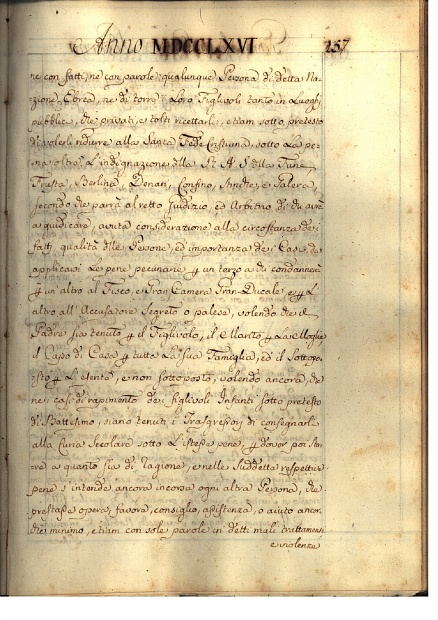 Anno MDCCLXVI 257
ne con fatti, ne con parole qualunque Persona di detta Na-
zione Ebrea, ne di torre Loro Figlivoli tanto in Luoghi
pubblici, che privati, e tolti ricettarli, etiam sotto pretesto
di volerli ridurre alla Santa Fede Cristiana, sotto La pe-
na oltre L'indignazione della St. A. S. della Fune,
Frusta, Berlina, Denari, Confino, Stinche, e Galera,
secondo che parrà al retto Giudizio, ed Arbitrio di chi avrà
a giudicare, avuta considerazione alla circostanza dei
fatti qualità delle Persone, ed importanza dei Casi, da
applicarsi Le pene pecuniarie p un terzo a di condannerà
p un'altro al Fisco, e Gran Camera Gran-Ducale, e p L'
altro all'Accusatore Segreto o palese, volendo che il
Padre sia tenuto p il Figlivolo, il Marito p La Moglie
il Capo di Casa p tutta La sua Famiglia, ed il Sottopo-
sto p L'esente, e non sottoposto, volendo ancora, che
nei casi di rapimento dei figlivoli Infanti sotto pretesto
di Battesimo, siano tenuti i Trasgressori di consegnarli
alla Curia Secolare sotto L'istesse pene, p dover poi sta-
re a quanto sia di ragione, e nelle Suddetta respettive
pene s'intende ancora incorsa ogni altra Persona, che
prestasse opera, favore, consiglio, assistenza, o aiuto ancor-
che minimo, etiam con sole parole in detti mali trattamenti
e violenze